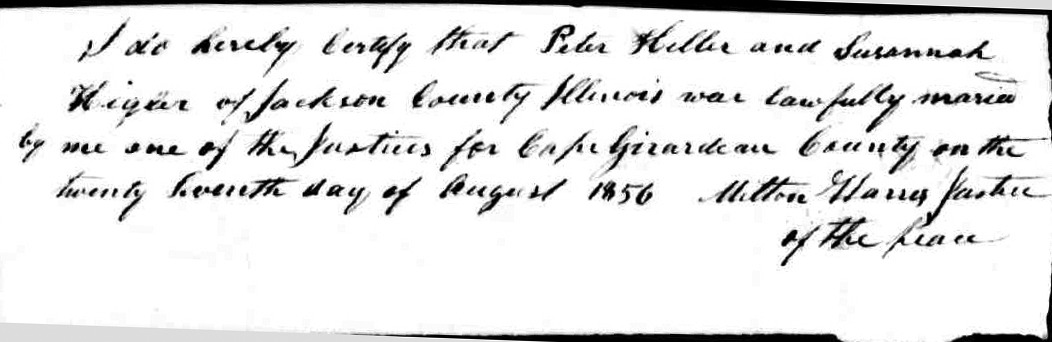 I do hereby Certify that Peter Heller and Susannah
Kigler of Jackson County Illinois war lawfully maried
by me one of the Justices for Cape Girardeau County on the
twenty Seventh day of August 1856 Milton Harris Justice
of the peace